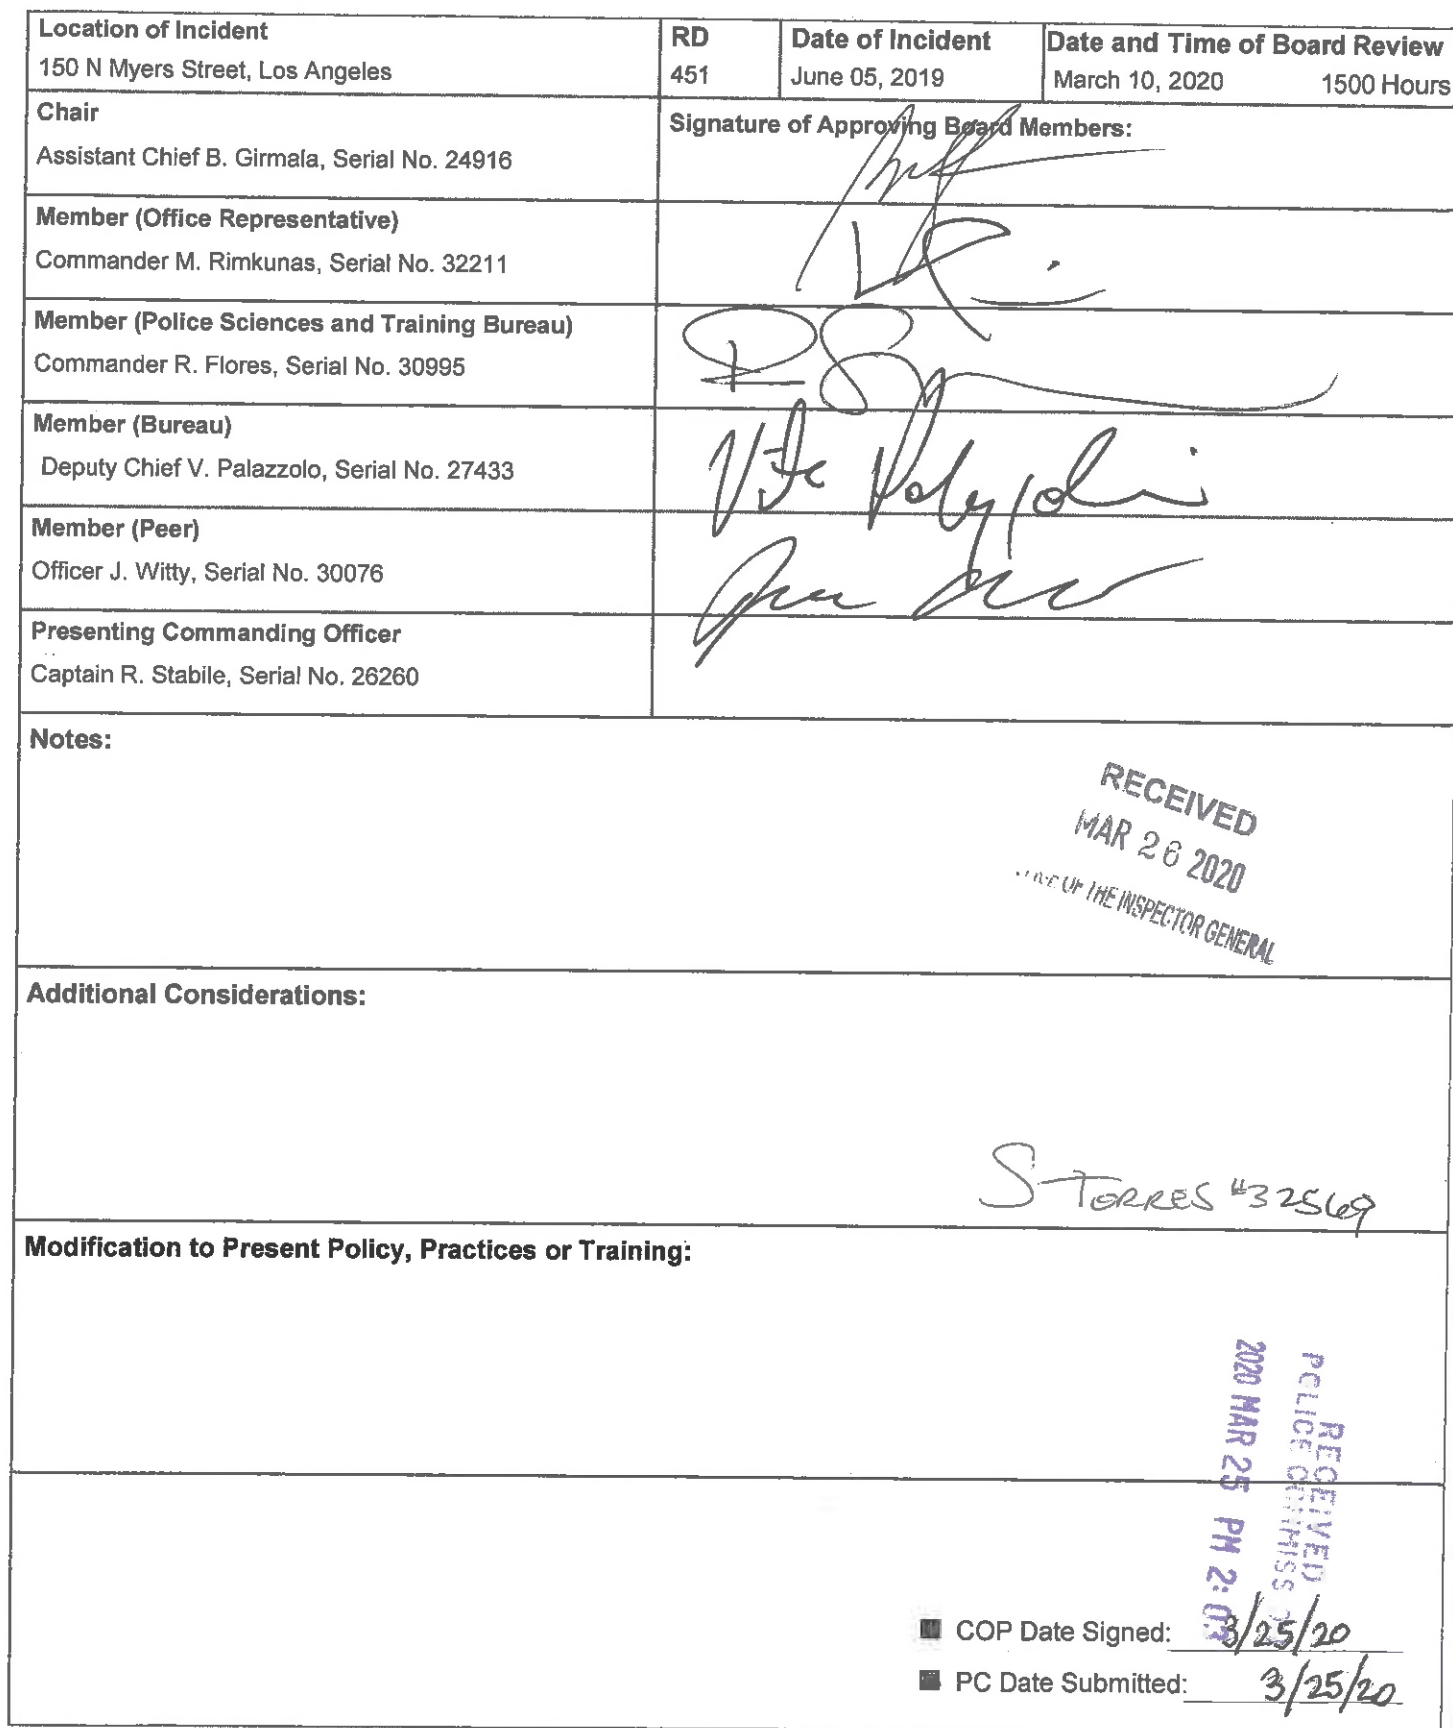 Location of Incident
150 N Myers Street, Los Angeles
RD
451
Date of Incident
June 05, 2019
Date and Time of Board Review
March 10, 2020 1500 Hours
Chair
Assistant Chief B. Girmala, Serial No. 24916
Signature of Approving Board Members:
Member (Office Representative)
Commander M. Rimkunas, Serial No. 32211
Member (Police Sciences and Training Bureau)
Commander R. Flores, Serial No. 30995
Member (Bureau)
Deputy Chief V. Palazzolo, Serial No. 27433
Member (Peer)
Officer J. Witty, Serial No. 30076
Presenting Commanding Officer
Captain R. Stabile, Serial No. 26260
Notes:
RECEIVED
MAR 26 2020
OF THE INSPECTOR GENERAL
Additional Considerations:
S TORRES #32569
Modification to Present Policy, Practices or Training:
RECEIVED
POLICE
2020 MAR 25 PM
COP Date Signed: 3/25/20
PC Date Submitted: 3/25/20